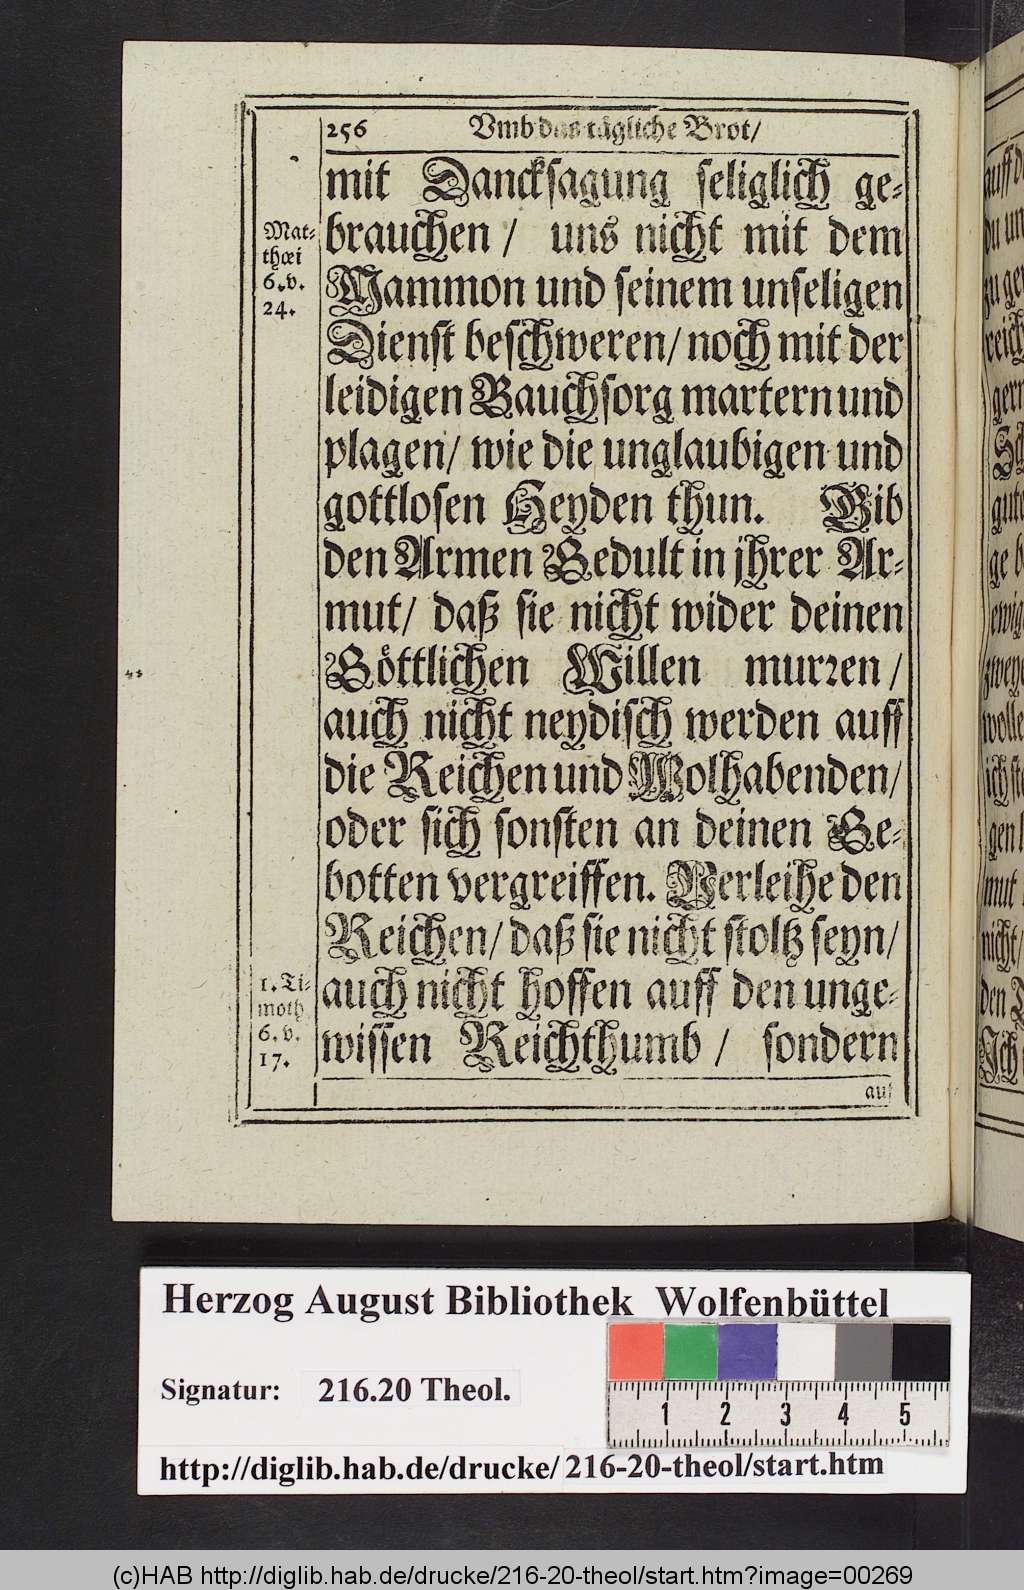 256 Vmb das tägliche Brot/
mit Dancksagung seliglich ge-
brauchen / uns nicht mit dem
Mammon und seinem unseligen
Dienst beschweren/ noch mit der
leidigen Bauchsorg martern und
plagen/ wie die unglaubigen und
gottlosen Heyden thun. Gib
den Armen Gedult in jhrer Ar-
mut/ daß sie nicht wider deinen
Göttlichen Willen murren /
auch nicht neydisch werden auff
die Reichen und Wolhabenden/
oder sich sonsten an deinen Ge-
botten vergreiffen. Verleihe den
Reichen/ daß sie nicht stoltz seyn/
auch nicht hoffen auff den unge-
wissen Reichthumb / sondern
auf
Mat-
thœi
6.v.
24.
1. Ti-
moth
6. v.
17.
auff
du
zu
reich
gern
gut
ge
ewig
zwey
wolle
ich
gen
mut
nicht/
den
Ich
Herzog August Bibliothek Wolfenbüttel
Signatur: 216.20 Theol.
1 2 3 4 5
http://diglib.hab.de/drucke/216-20-theol/start.htm
(c)HAB http://diglib.hab.de/drucke/216-20-theol/start.htm?image=00269